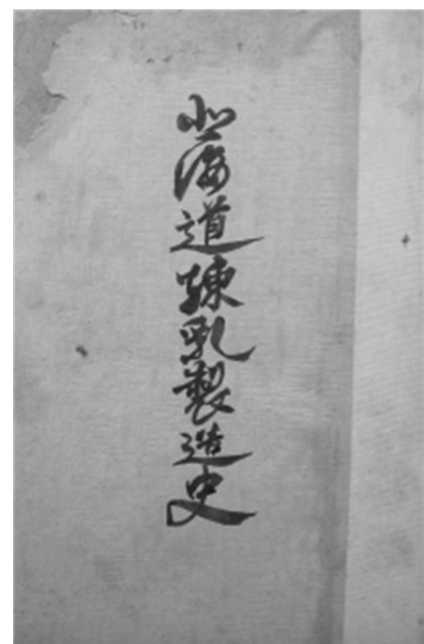 北海道練乳製造史